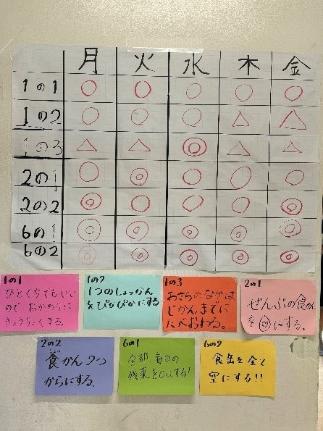 月 火 水 木 金
1の1 ○ ○ ○ ○ ○
1の2 ○ ○ ○ △ △
1の3 △ △ ◎ △ △
2の1 ○ ◎ ○ ○ ○
2の2 ◎ ○ ○ ○ ○
6の1 ◎ ◎ ◎ ◎ ◎
6の2 ◎ ◎ ◎ ◎ ◎
1の1
ひとくちでもいい
1の2
1つのしょっかん
をぴかぴかにする
1の3
おさらのなかは
じかんまでに
たべおわる。
2の1
ぜんぶの食かん
を◎にする。
2の2
食かん2つ
からにする。
6の1
全部毎日の
残菜を0にする!
6の2
食缶を全て
空にする!!